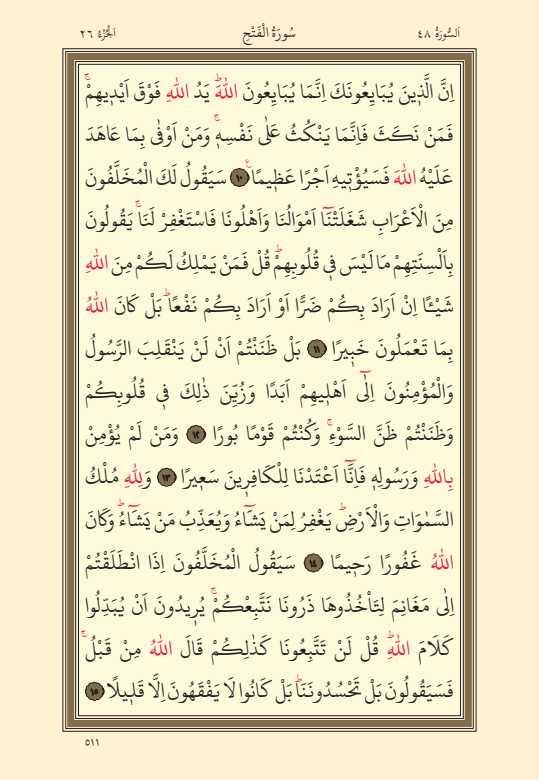 اَلسُّورَةُ ٤٨ سُورَةُ الْفَتْحِ اَلْجُزْءُ ٢٦
اِنَّ الَّذ۪ينَ يُبَايِعُونَكَ اِنَّمَا يُبَايِعُونَ اللّٰهَۜ يَدُ اللّٰهِ فَوْقَ اَيْد۪يهِمْۚ
فَمَنْ نَكَثَ فَاِنَّمَا يَنْكُثُ عَلٰى نَفْسِه۪ۚ وَمَنْ اَوْفٰى بِمَا عَاهَدَ
عَلَيْهُ اللّٰهَ فَسَيُؤْت۪يهِ اَجْرًا عَظ۪يمًاۚ ﴿١٠﴾ سَيَقُولُ لَكَ الْمُخَلَّفُونَ
مِنَ الْاَعْرَابِ شَغَلَتْنَٓا اَمْوَالُنَا وَاَهْلُونَا فَاسْتَغْفِرْ لَنَاۚ يَقُولُونَ
بِاَلْسِنَتِهِمْ مَا لَيْسَ ف۪ي قُلُوبِهِمْۜ قُلْ فَمَنْ يَمْلِكُ لَكُمْ مِنَ اللّٰهِ
شَيْـًٔا اِنْ اَرَادَ بِكُمْ ضَرًّا اَوْ اَرَادَ بِكُمْ نَفْعًاۜ بَلْ كَانَ اللّٰهُ
بِمَا تَعْمَلُونَ خَب۪يرًا ﴿١١﴾ بَلْ ظَنَنْتُمْ اَنْ لَنْ يَنْقَلِبَ الرَّسُولُ
وَالْمُؤْمِنُونَ اِلٰٓى اَهْل۪يهِمْ اَبَدًا وَزُيِّنَ ذٰلِكَ ف۪ي قُلُوبِكُمْ
وَظَنَنْتُمْ ظَنَّ السَّوْءِۚ وَكُنْتُمْ قَوْمًا بُورًا ﴿١٢﴾ وَمَنْ لَمْ يُؤْمِنْ
بِاللّٰهِ وَرَسُولِه۪ فَاِنَّٓا اَعْتَدْنَا لِلْكَافِر۪ينَ سَع۪يرًا ﴿١٣﴾ وَلِلّٰهِ مُلْكُ
السَّمٰوَاتِ وَالْاَرْضِۜ يَغْفِرُ لِمَنْ يَشَٓاءُ وَيُعَذِّبُ مَنْ يَشَٓاءُۜ وَكَانَ
اللّٰهُ غَفُورًا رَح۪يمًا ﴿١٤﴾ سَيَقُولُ الْمُخَلَّفُونَ اِذَا انْطَلَقْتُمْ
اِلٰى مَغَانِمَ لِتَأْخُذُوهَا ذَرُونَا نَتَّبِعْكُمْۚ يُر۪يدُونَ اَنْ يُبَدِّلُوا
كَلَامَ اللّٰهِۜ قُلْ لَنْ تَتَّبِعُونَا كَذٰلِكُمْ قَالَ اللّٰهُ مِنْ قَبْلُۚ
فَسَيَقُولُونَ بَلْ تَحْسُدُونَنَاۜ بَلْ كَانُوا لَا يَفْقَهُونَ اِلَّا قَل۪يلًا ﴿١٥﴾
٥١١